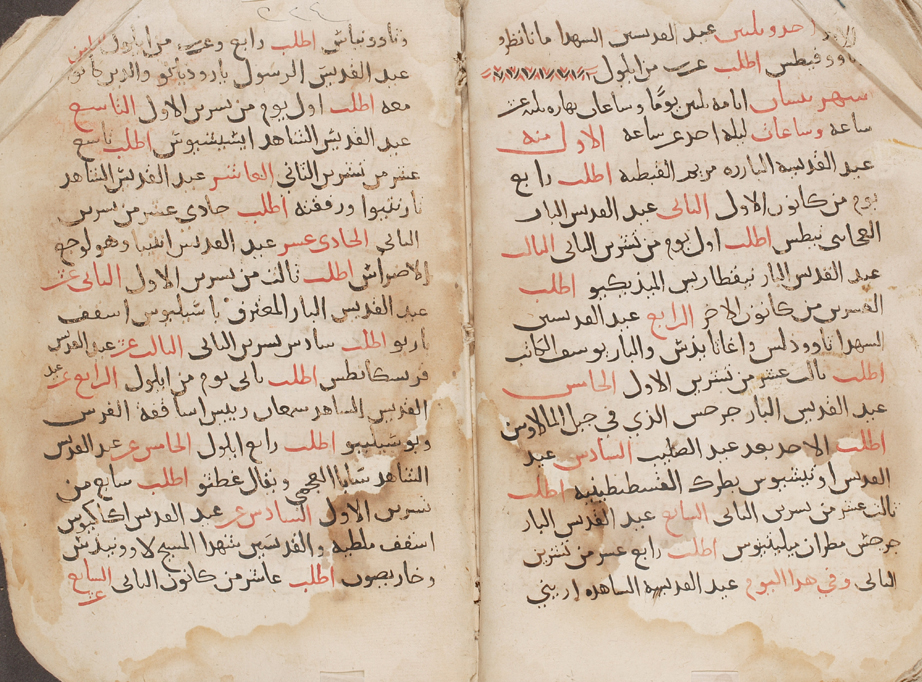 احد وتلتين عيد القديسين الشهدا مانانفطرو
وتاودوفيطس اطلب عرب من ايلول
شهر نيسان ايامه تلتين يومًا وساعات نهاره تلته عشر
ساعه وساعات ليله احد عشر ساعه الاول منه
عيد القديسه الباره مريم القبطيه اطلب رابع
يوم من كانون الاول الثاني عيد القديس البار
العجايبي تيطس اطلب اول يوم من تشرين الثاني الثالث
عيد القديس البار نيقطا ريس الميذيكيو اطلب
العشرين من كانون الاخر الرابع عيد القديسين
الشهدا تاوودلس واغاثابذس والبار يوسف الكاتب
اطلب ثالث عشر من تشرين الاول الخامس
عيد القديس البار جرجس الذي في جبل المالاوس
اطلب الاحد بعد عيد الصليب السادس عيد
القديس اوتيشيوس بطرك القسطنطينيه اطلب
ثالث عشر من تشرين الثاني السابع عيد القديس البار
جرجس مطران ميلينيوس اطلب رابع عشر من تشرين
الثاني وفي هدا اليوم عيد القديسه الشاهده اريني
اطلب رابع وعشرين من ايلول الثامن
عيد القديس الرسول ياروديانو والذين كانو
معه اطلب اول يوم من تشرين الاول التاسع
عيد القديس الشاهد ابشيشيوس اطلب تاسع
عشر من تشرين الثاني العاشر عيد القديس الشاهد
تارنتيوا ورفقته اطلب حادي عشر من تشرين
الثاني الحادي عشر عيد القديس انتيبا وهو لوجع
الاضراس اطلب ثالث من تشرين الاول الثاني عشر
عيد القديس البار المعترف باسيليوس اسقف
اريو اطلب سادس تشرين الثاني الثالث عشر عيد القديس
اطلب ثاني يوم من ايلول الرابع عشر عيد
القديس الشاهد سمعان رييس اساقفة الفرس
اطلب رابع ايلول الخامس عشر عيد القديس
الشاهد سابا العجمي ويقال غطنو اطلب سابع من
تشرين الاول السادس عشر عيد القديس اكاكيوس
اسقف ملطيه والقديسين شهدا المسيح لاوونيذس
وخاريصون اطلب عاشر من كانون الثاني السابع
عشر